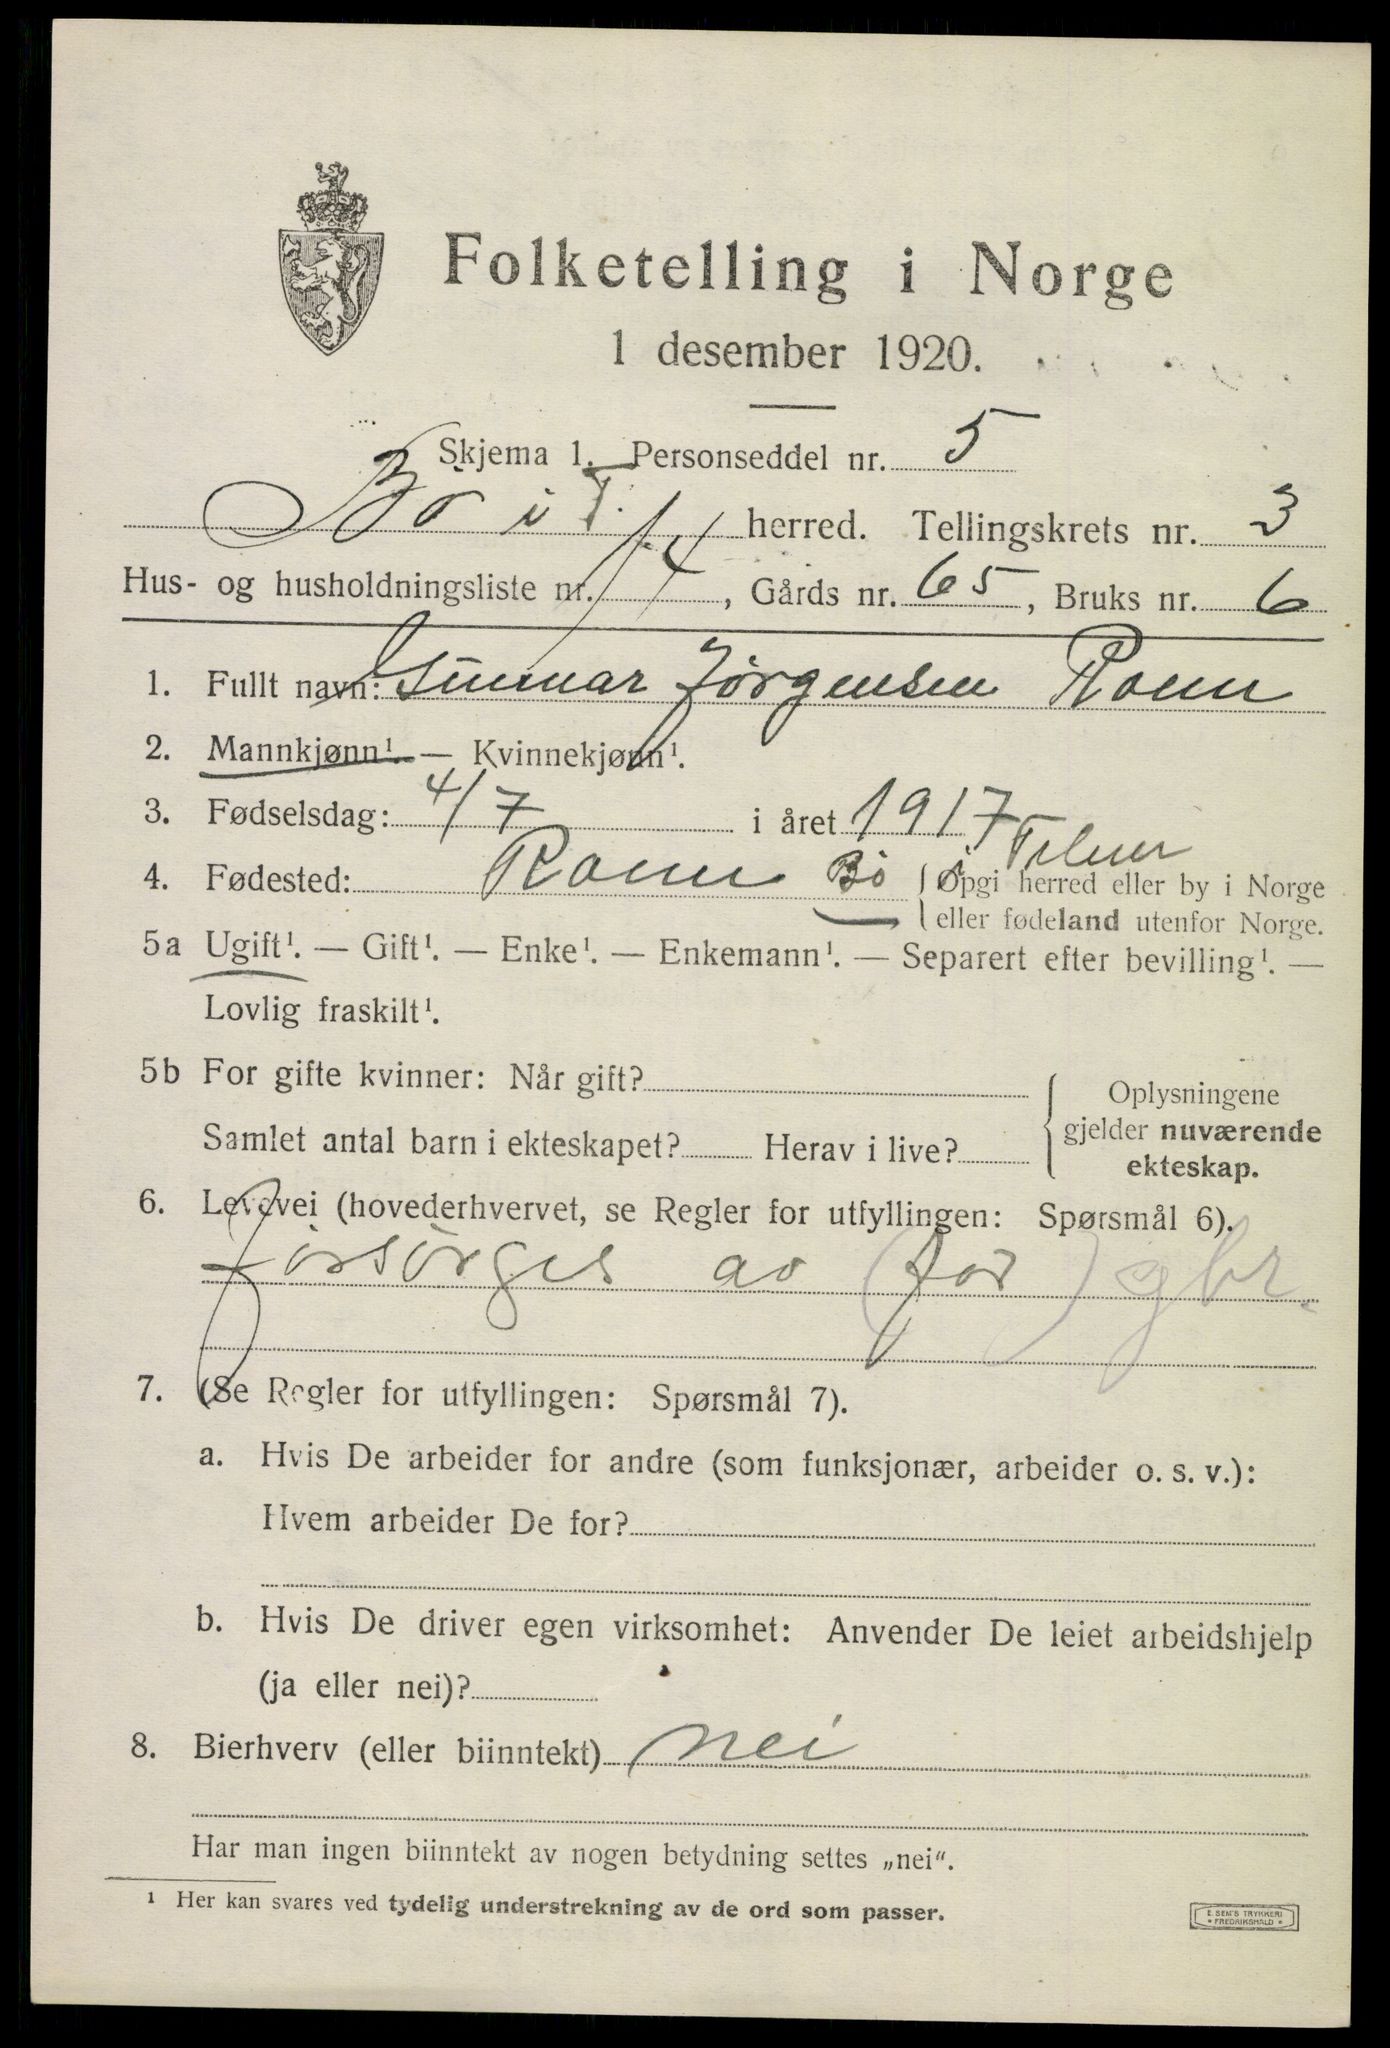 Folketelling i Norge
1 desember 1920.
Skjema 1. Personseddel nr. 5
Bö i T. herred. Tellingskrets nr. 3
Hus- og husholdningsliste nr. 14, Gårds nr. 65, Bruks nr. 6
1. Fullt navn: Gunnar Jörgensen Roen
2. Mannkjønn¹. — Kvinnekjønn¹.
3. Fødselsdag: 4/7 i året 1917
4. Fødested: Roen Bö i Telem
{ Opgi herred eller by i Norge
eller fødeland utenfor Norge.
5a Ugift¹. — Gift¹. — Enke¹. — Enkemann¹. — Separert efter bevilling¹. —
Lovlig fraskilt¹.
5b For gifte kvinner: Når gift?
Samlet antal barn i ekteskapet? Herav i live?
{ Oplysningene
gjelder nuværende
ekteskap.
6. Levevei (hovederhvervet, se Regler for utfyllingen: Spørsmål 6).
Forsörges av (far) gbr.
7. (Se Regler for utfyllingen: Spørsmål 7).
a. Hvis De arbeider for andre (som funksjonær, arbeider o. s. v.):
Hvem arbeider De for?
b. Hvis De driver egen virksomhet: Anvender De leiet arbeidshjelp
(ja eller nei)?
8. Bierhverv (eller biinntekt) nei
Har man ingen biinntekt av nogen betydning settes „nei“.
¹ Her kan svares ved tydelig understrekning av de ord som passer.
E. SEM'S TRYKKERI
* FREDRIKSHALD *